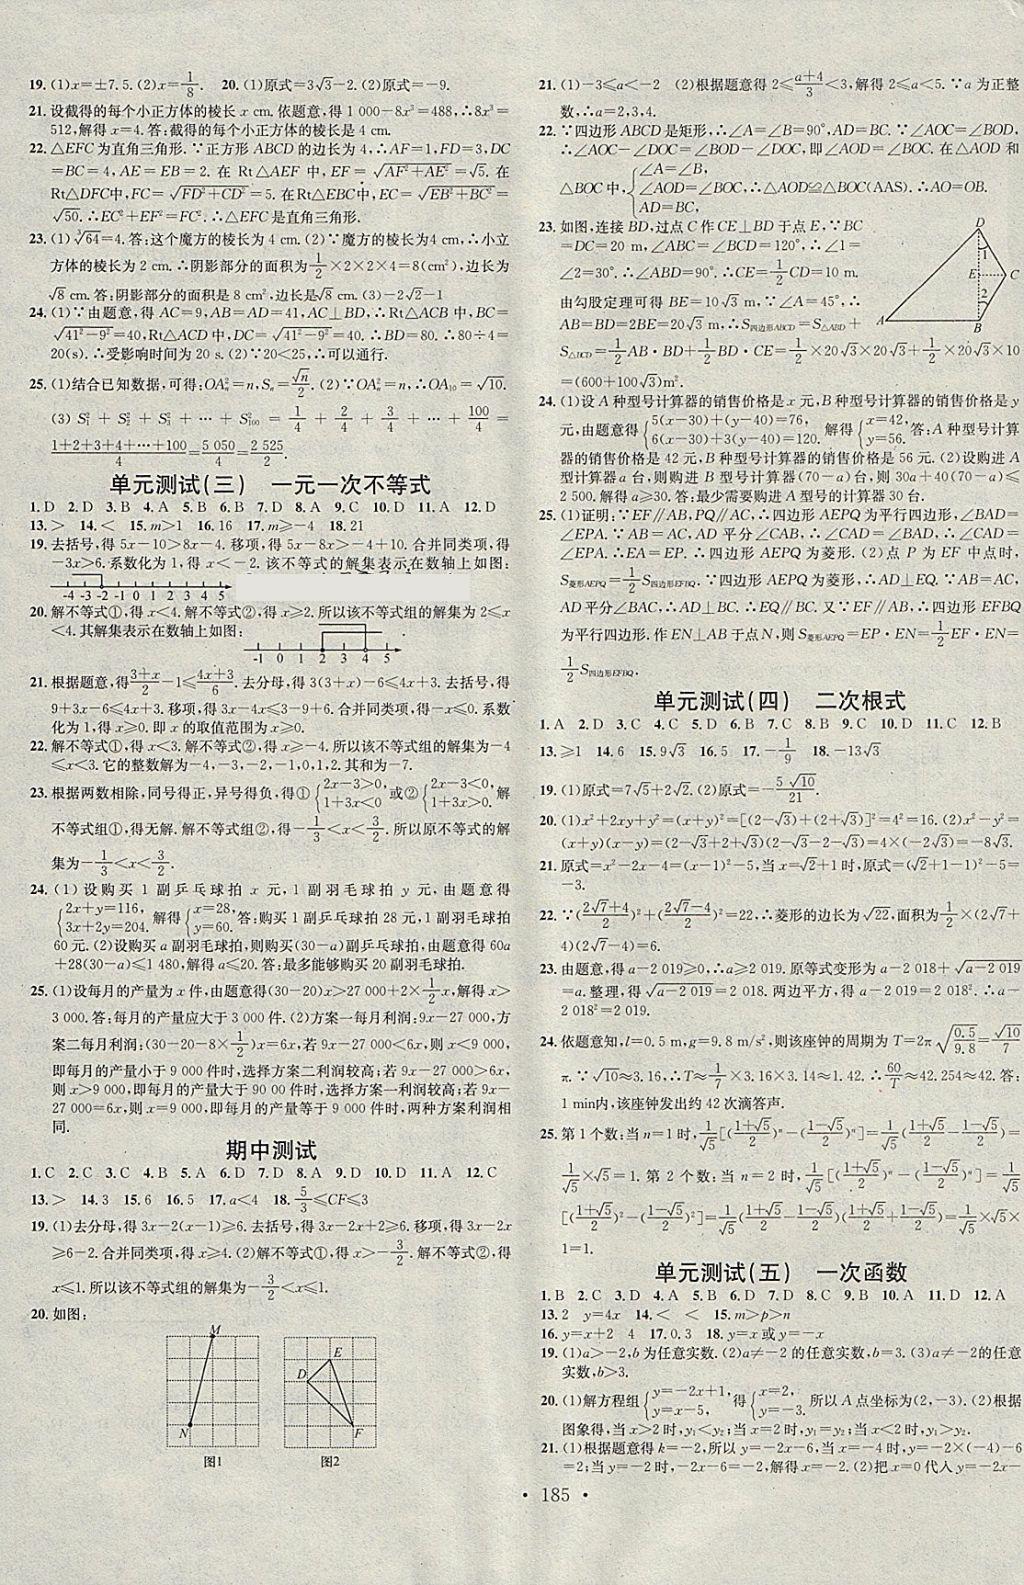 19. (1)x=±7.5. (2)x=1/8. 20. (1)原式=3√3-2. (2)原式=-9.
21. 设截得的每个小正方体的棱长 x cm. 依题意,得 1 000-8x³=488,∴8x³=
512,解得 x=4. 答:截得的每个小正方体的棱长是 4 cm.
22. △EFC为直角三角形. ∵正方形 ABCD 的边长为 4,∴AF=1,FD=3,DC
=BC=4,AE=EB=2. 在 Rt△AEF 中,EF=√(AF²+AE²)=√5. 在
Rt△DFC中,FC=√(FD²+CD²)=5. 在Rt△EBC中,EC=√(EB²+BC²)=
√50. ∴EC²+EF²=FC². ∴△EFC是直角三角形.
23. (1)³√64=4. 答:这个魔方的棱长为 4 cm. (2)∵魔方的棱长为4 cm,∴小立
方体的棱长为 2 cm. ∴阴影部分的面积为1/2×2×2×4=8(cm²),边长为
√8 cm. 答:阴影部分的面积是 8 cm²,边长是√8 cm. (3)-2√2-1
24. (1)∵由题意,得 AC=9,AB=AD=41,AC⊥BD,∴Rt△ACB 中,BC=
√(41²-9²)=40,Rt△ACD 中,DC=√(41²-9²)=40,∴BD=80. ∴80÷4=
20(s). ∴受影响时间为 20 s. (2)∵20<25,∴可以通行.
25. (1)结合已知数据,可得:OAₙ²=n,Sₙ=√n/2. (2)∵OAₙ²=n,∴OA₁₀=√10.
(3) S₁²+S₂²+S₃²+⋯+S₁₀₀²=1/4+2/4+3/4+⋯+100/4=
(1+2+3+4+⋯+100)/4=5 050/4=2 525/2.
单元测试(三) 一元一次不等式
1. D 2. D 3. B 4. A 5. B 6. B 7. D 8. A 9. C 10. D 11. A 12. D
13. > 14. < 15. m>1 16. 16 17. m≥-4 18. 21
19. 去括号,得 5x-10>8x-4. 移项,得 5x-8x>-4+10. 合并同类项,得
-3x>6. 系数化为 1,得 x<-2. 该不等式的解集表示在数轴上如图:
-4 -3 -2 -1 0 1 2 3 4 5
20. 解不等式①,得 x<4. 解不等式②,得 x≥2. 所以该不等式组的解集为 2≤x
<4. 其解集表示在数轴上如图:
-1 0 1 2 3 4 5
21. 根据题意,得(3+x)/2-1≤(4x+3)/6. 去分母,得 3(3+x)-6≤4x+3. 去括号,得
9+3x-6≤4x+3. 移项,得 3x-4x≤3-9+6. 合并同类项,得-x≤0. 系数
化为1,得x≥0. 即 x 的取值范围为x≥0.
22. 解不等式①,得 x<3. 解不等式②,得 x≥-4. 所以该不等式组的解集为-4
≤x<3. 它的整数解为-4,-3,-2,-1,0,1,2. 其和为-7.
23. 根据两数相除,同号得正,异号得负,得①{2x-3>0, 1+3x<0 或②{2x-3<0, 1+3x>0. 解
不等式组①,得无解. 解不等式组②,得-1/3<x<3/2. 所以原不等式的解
集为-1/3<x<3/2.
24. (1)设购买 1 副乒乓球拍 x 元,1 副羽毛球拍 y 元,由题意得
{2x+y=116, 3x+2y=204. 解得{x=28, y=60. 答:购买 1 副乒乓球拍 28 元,1 副羽毛球拍
60 元. (2)设购买 a 副羽毛球拍,则购买(30-a)副乒乓球拍,由题意得 60a
+28(30-a)≤1 480,解得 a≤20. 答:最多能够购买 20 副羽毛球拍.
25. (1)设每月的产量为 x 件,由题意得(30-20)x>27 000+2×1/2x,解得 x>
3 000. 答:每月的产量应大于 3 000 件. (2)方案一每月利润:9x-27 000,方
案二每月利润:(30-20-8×1/2)x=6x,若 9x-27 000<6x,则 x<9 000,
即每月的产量小于 9 000 件时,选择方案二利润较高;若 9x-27 000>6x,
则 x>9 000,即每月的产量大于 90 00 件时,选择方案一利润较高;若 9x-
27 000=6x,则 x=9 000,即每月的产量等于 9 000 件时,两种方案利润相
同.
期中测试
1. C 2. C 3. C 4. B 5. A 6. D 7. D 8. A 9. D 10. D 11. A 12. C
13. > 14. 3 15. 6 16. 5 17. a<4 18. 5/3≤CF≤3
19. (1)去分母,得 3x-2(x-1)≥6. 去括号,得 3x-2x+2≥6. 移项,得 3x-2x
≥6-2. 合并同类项,得 x≥4. (2)解不等式①,得 x>-3/2. 解不等式②,得
x≤1. 所以该不等式组的解集为-3/2<x≤1.
20. 如图:
M
N
图1
E
D
F
图2
21. (1)-3≤a<-2 (2)根据题意得 2≤(a+4)/3<3,解得 2≤a<5. ∵a 为正整
数,∴a=2,3,4.
22. ∵四边形 ABCD 是矩形,∴∠A=∠B=90°,AD=BC. ∵∠AOC=∠BOD,
∴∠AOC-∠DOC=∠BOD-∠DOC,即∠AOD=∠BOC. 在△AOD 和
△BOC 中,{∠A=∠B, ∠AOD=∠BOC, AD=BC, ∴△AOD≌△BOC(AAS). ∴AO=OB.
23. 如图,连接 BD,过点 C 作 CE⊥BD 于点 E. ∵BC
=DC=20 m,∠ABC=∠BCD=120°,∴∠1=
∠2=30°. ∴∠ABD=90°. ∴CE=1/2CD=10 m.
由勾股定理可得 BE=10√3 m. ∵∠A=45°,∴
AB=BD=2BE=20√3 m. ∴S四边形ABCD=S△ABD+
S△BCD=1/2AB·BD+1/2BD·CE=1/2×20√3×20√3+1/2×20√3×10
=(600+100√3)m².
D
1
E
C
2
A
B
24. (1)设 A 种型号计算器的销售价格是 x 元,B 种型号计算器的销售价格是 y
元,由题意得{5(x-30)+(y-40)=76, 6(x-30)+3(y-40)=120. 解得{x=42, y=56. 答:A 种型号计算
器的销售价格是 42 元,B 种型号计算器的销售价格是 56 元. (2)设购进 A
型计算器 a 台,则购进 B 种型号计算器(70-a)台,则 30a+40(70-a)≤
2 500. 解得 a≥30. 答:最少需要购进 A 型号的计算器 30 台.
25. (1)证明:∵EF∥AB,PQ∥AC,∴四边形 AEPQ 为平行四边形,∠BAD=
∠EPA. ∵AB=AC,AD 平分∠CAB,∴∠CAD=∠BAD,∴∠CAD=
∠EPA. ∴EA=EP. ∴四边形 AEPQ 为菱形. (2)点 P 为 EF 中点时,
S菱形AEPQ=1/2S四边形EFBQ. ∵四边形 AEPQ 为菱形,∴AD⊥EQ. ∵AB=AC,
AD平分∠BAC,∴AD⊥BC. ∴EQ∥BC. 又∵EF∥AB,∴四边形 EFBQ
为平行四边形. 作 EN⊥AB 于点 N,则 S菱形AEPQ=EP·EN=1/2EF·EN=
1/2S四边形EFBQ.
单元测试(四) 二次根式
1. A 2. D 3. C 4. C 5. D 6. B 7. C 8. B 9. C 10. D 11. C 12. B
13. ≥1 14. 6 15. 9√3 16. 5 17. -1/9 18. -13√3
19. (1)原式=7√5+2√2. (2)原式=-5√10/21.
20. (1)x²+2xy+y²=(x+y)²=[(2-√3)+(2+√3)]²=4²=16. (2)x²-y²=
(x+y)(x-y)=(2-√3+2+√3)(2-√3-2-√3)=4×(-2√3)=-8√3.
21. 原式=x²-2x-4=(x-1)²-5,当 x=√2+1时,原式=(√2+1-1)²-5=
-3.
22. ∵((2√7+4)/2)²+((2√7-4)/2)²=22,∴菱形的边长为√22,面积为1/2×(2√7+
4)(2√7-4)=6.
23. 由题意,得 a-2 019≥0,∴a≥2 019. 原等式变形为 a-2 018+√(a-2 019)
=a. 整理,得√(a-2 019)=2 018. 两边平方,得 a-2 019=2 018². ∴a-
2 018²=2 019.
24. 依题意知,l=0.5 m,g=9.8 m/s²,则该座钟的周期为 T=2π√(0.5/9.8)=√10/7
π. ∵√10≈3.16,∴T≈1/7×3.16×3.14≈1.42. ∴60/T≈42.254≈42. 答:
1 min内,该座钟发出约 42 次滴答声.
25. 第 1 个数:当 n=1 时,1/√5[((1+√5)/2)ⁿ-((1-√5)/2)ⁿ]=1/√5((1+√5)/2-(1-√5)/2)=
1/√5×√5=1. 第 2 个数:当 n=2 时,1/√5[((1+√5)/2)ⁿ-((1-√5)/2)ⁿ]=1/√5
[((1+√5)/2)²-((1-√5)/2)²]=1/√5((1+√5)/2+(1-√5)/2)((1+√5)/2-(1-√5)/2)=1/√5×√5×
1=1.
单元测试(五) 一次函数
1. B 2. C 3. D 4. A 5. D 6. B 7. D 8. C 9. B 10. A 11. D 12. A
13. 2 y=4x 14. < < 15. m>p>n
16. y=x+2 4 17. 0.3 18. y=x或y=-x
19. (1)a>-2,b 为任意实数. (2)a≠-2 的任意实数,b=3. (3)a≠-2 的任意
实数,b>3.
20. (1)解方程组{y=-2x+1, y=x-5, 得{x=2, y=-3. 所以 A 点坐标为(2,-3). (2)根据
图象得,当 x>2 时,y₁<y₂;当 x=2 时,y₁=y₂;当 x<2 时,y₁>y₂.
21. (1)根据题意得 k=-2,所以 y=-2x-6,当 x=-4 时,y=-2×(-4)-6
=2;当 y=-2 时,-2x-6=-2,解得 x=-2. (2)把 x=0 代入 y=-2x-
• 185 •